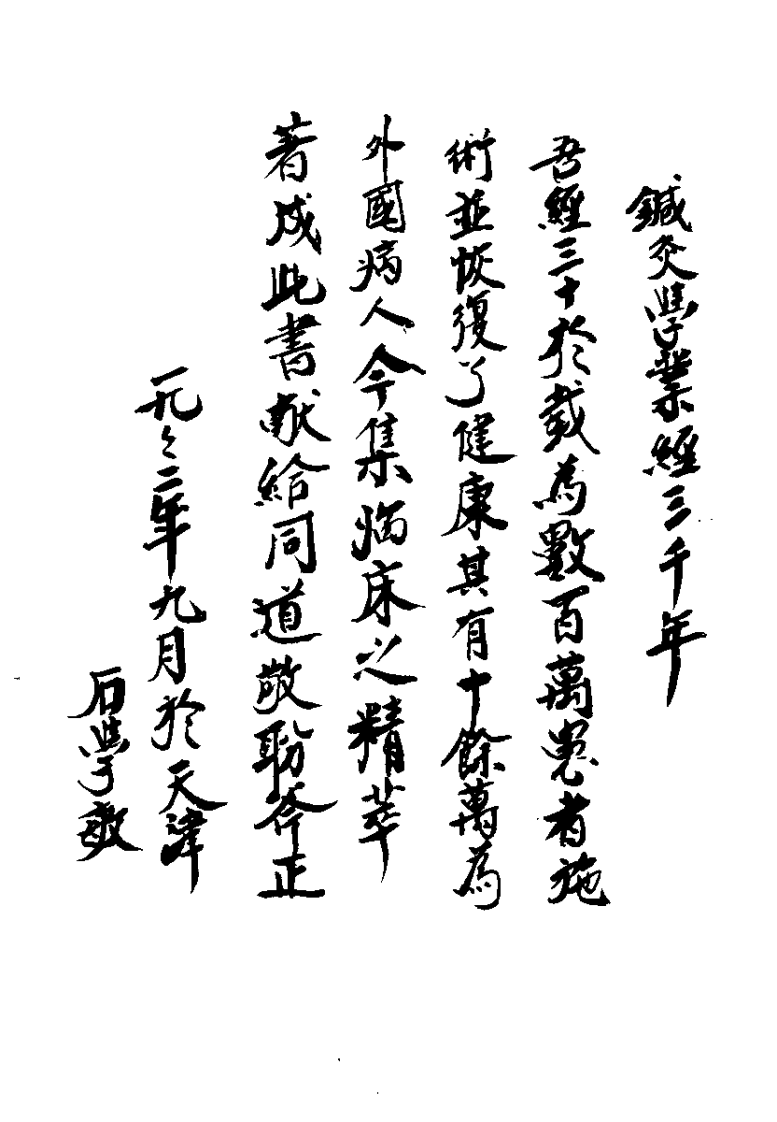 鍼灸學業經三千年
吾經三十於載為數百萬患者施
術並恢復了健康其有十餘萬為
外國病人今集临床之精萃
著成此書献給同道敬聆斧正
一九九二年九月於天津
石學敏